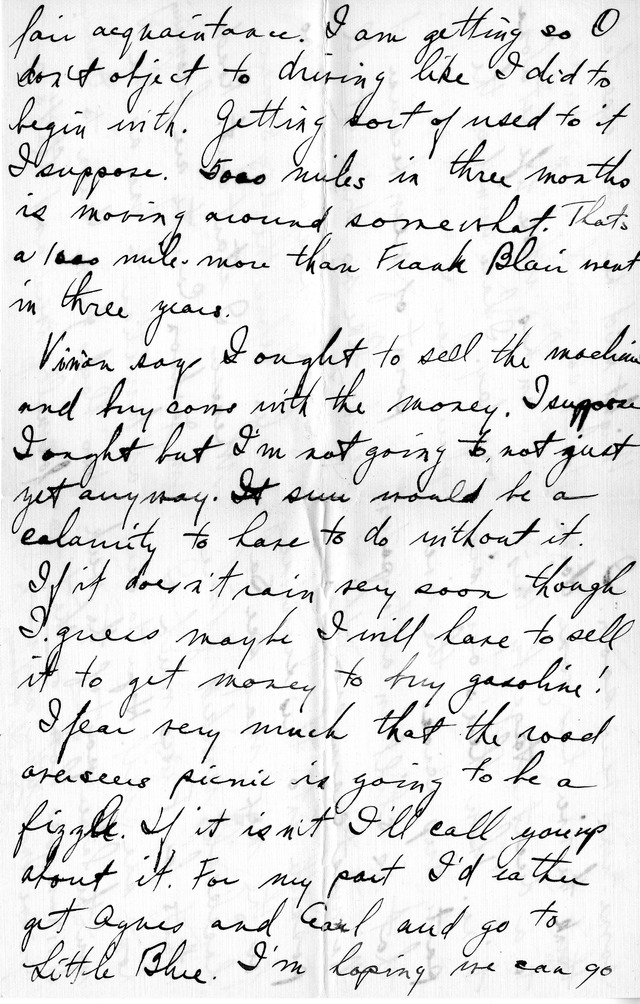 fair acquaintance. I am getting so I
don't object to driving like I did to
begin with. Getting sort of used to it
I suppose. 5000 miles in three months
is moving around somewhat. Thats
a 1000 mile more than Frank Blair went
in three years.
Vivian says I ought to sell the machine
and buy cows with the money. I suppose
I ought but I'm not going to, not just
yet anyway. It sure would be a
calamity to have to do without it.
If it doesn't rain very soon though
I guess maybe I will have to sell
it to get money to buy gasoline!
I fear very much that the road
overseers picnic is going to be a
fizzle. If it isn't I'll call you up
about it. For my part I'd rather
get Agnes and Earl and go to
Little Blue. I'm hoping we can go